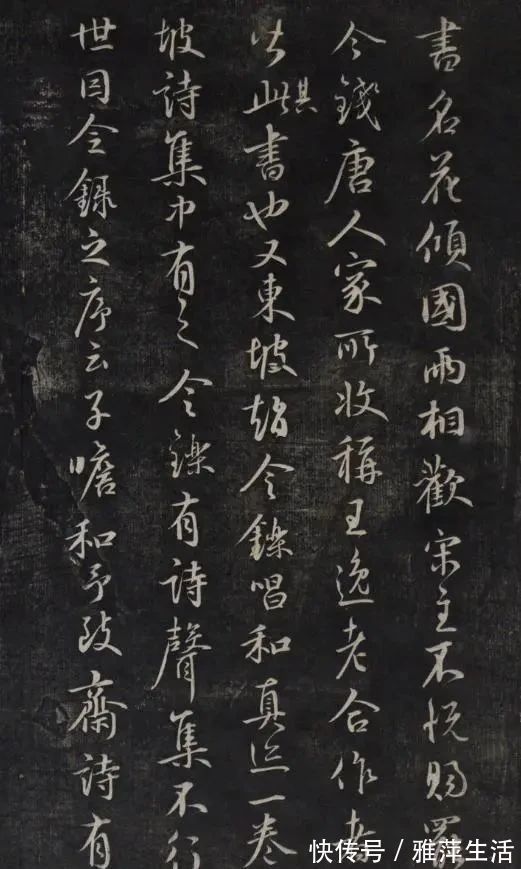 書名花傾國兩相歡宋主不悅賜罷
今錢唐人家所收稱王逸老合作者
皆此其書也又東坡趙令鑠唱和真迹一卷
坡詩集中有之令鑠有詩聲集不行
世因今錄之序云子瞻和予致齋詩有
快传号 / 雅萍生活